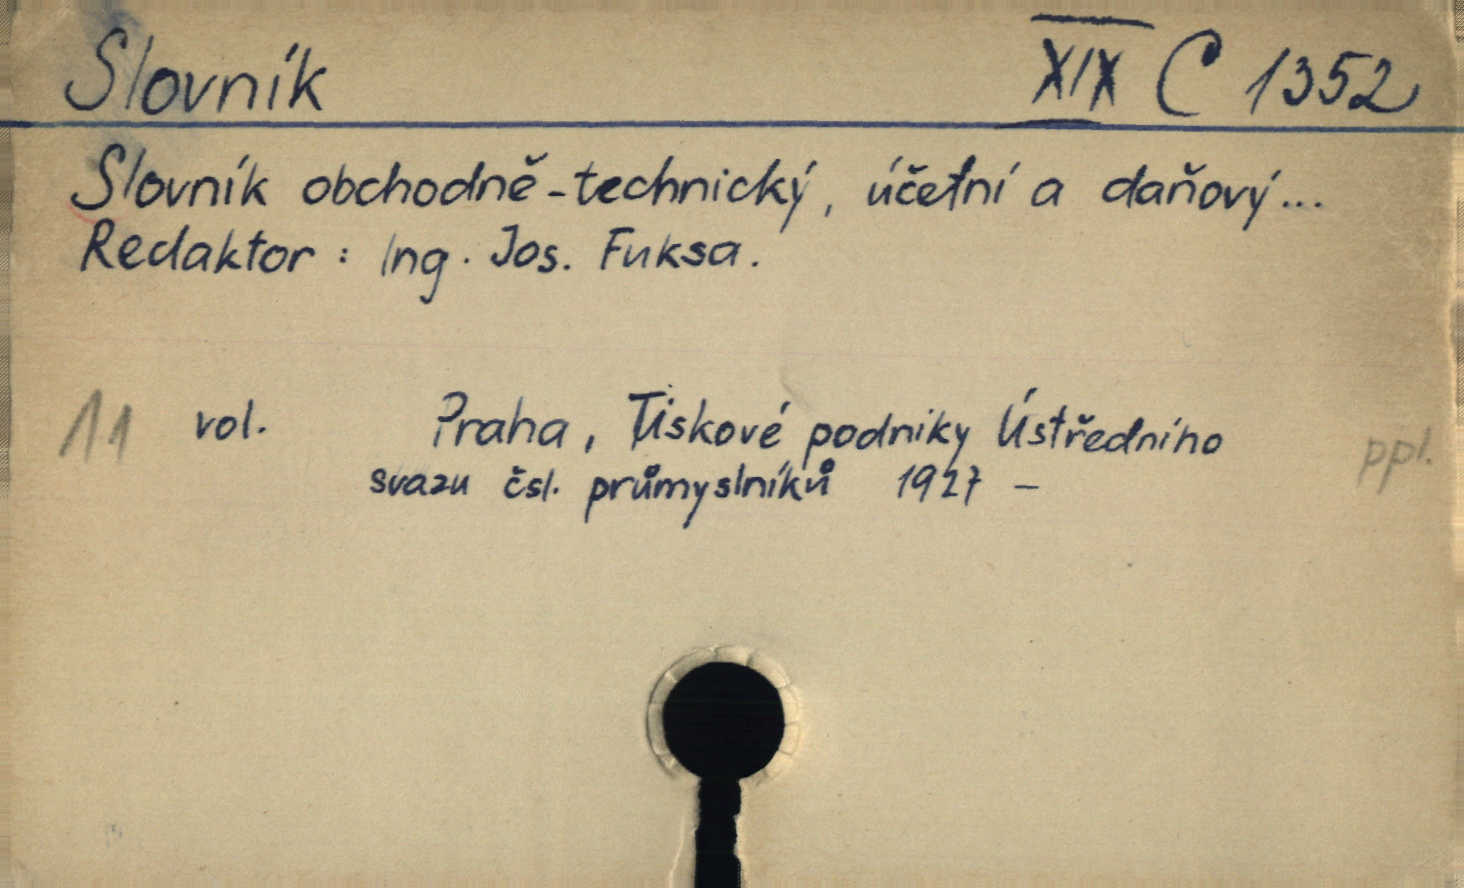 Slovník XIX C 1352
Slovník obchodně-technický, účetní a daňový...
Redaktor: Ing. Jos. Fuksa.
11 vol. Praha, Tiskové podniky Ústředního ppl.
svazu čsl. průmyslníků 1927 -